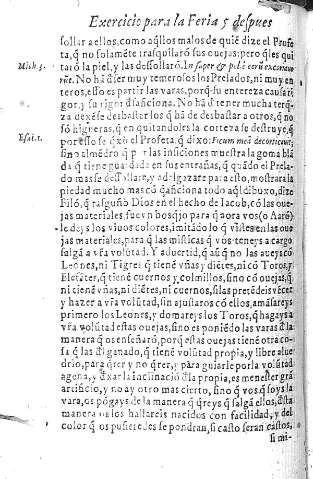 Exercicio para la Feria 5 despues
sollar a ellos, como aq̃llos malos de quiẽ dize el Profe
ta, q̃ no solamẽte trasquilarõ sus ouejas: pero q̃ les qui
Mich. 3. tarõ la piel, y las dessollarõ. In super & pelē eorũ excoriaue
rũt. No hã d ser muy temerosos los Prelados, ni muy en
teros, esso es partir las varas, porq̃ su entereza causa ri
gor, y su rigor d saficiona. No hã d tener mucha ter
za dexẽse desbastar los q̃ hã de desbastar a otros, q̃ no
sõ higueras, q̃ en quitandoles la corteza se destruyẽ, q̃
Esai. 1. por esso se q̃xo el Profeta, q̃ dixo: Ficum meā decorticauit;
sino almẽdro q̃ por las insiciones muestra la goma blã
da q̃ tiene guardada en sus entrañas, q̃ quãdo el Prela
do mas se dessollare, y adelgazare para esto, mostrara la
piedad mucho mas cõ q̃ aficiona todo aq̃l dibuxo, dize
Filõ, q̃ rasguñò Dios en el hecho de Iacob, cõ las oue
jas materiales, fue vn bosq̃jo para q̃ aora vos (o Aarõ)
le deys los viuos colores, imitãdo lo q̃ vistes en las oue
jas materiales, para q̃ las misticas q̃ vos teneys a cargo
salgã a vrã volutad. Y aduertid, q̃ aũ q̃ no las aueys cõ
Leones, ni Tigres q̃ tienẽ vñas y diẽtes, ni cõ Toros, y
Elefãtes, q̃ tienẽ cuernos y colmillos, sino cõ ouejas, q̃
ni tienẽ vñas, ni diẽtes, ni cuernos, si las pretẽdeis vẽcer,
y hazer a vrã volũtad, sin ajustaros cõ ellos, amãsareys
primero los Leones, y domareys los Toros, q̃ hagays a
vrã volũtad estas ouejas, sino es poniẽdo las varas d la
manera q̃ os enseñarõ, porq̃ estas ouejas tienẽ otra co
sa q̃ las d ganado, q̃ tienẽ volũtad propia, y libre alue
drio, para q̃rer y no q̃rer, y para guiarse por la volũtad
agena, y d xar la inclinaciõ d la propia, es menester grã
artificio, y no ay otro mas cierto, sino q̃ vos q̃ soys la
vara, os põgays de la manera q̃ q̃reys q̃ salgã ellos, d sta
manera os los hallareis nacidos con facilidad, y del
color q̃ os pusieredes se pondran, si casto seran castos,
si mi-